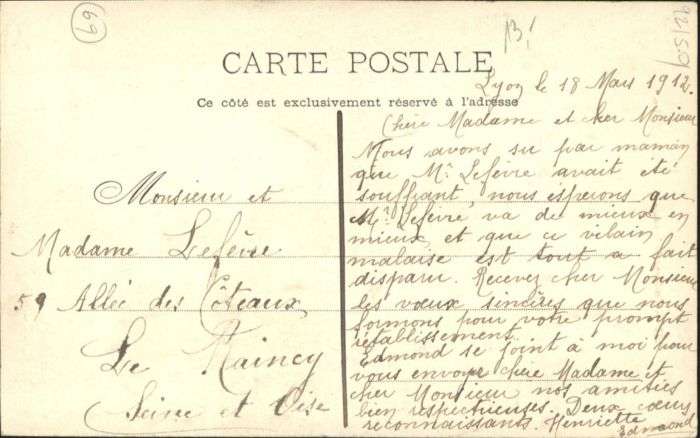 69
B!
CARTE POSTALE
Ce côté est exclusivement réservé à l'adresse
Lyon le 18 Mars 1912.
Chère Madame et cher Monsieur
Nous avons su par maman
que Mr. Lefèvre avait été
souffrant, nous espérons que
Mr. Lefèvre va de mieux en
mieux, et que ce vilain
malaise est tout a fait
disparu. Recevez cher Monsieur
les vœux sincères que nous
formons pour votre prompt
rétablissement.
Edmond se joint à moi pour
vous envoyer chère Madame et
cher Monsieur nos amitiés
bien respectueuses. Deux cœurs
reconnaissants. Henriette
Edmond
Monsieur et
Madame Lefèvre
59 Allée des Côteaux
Le Raincy
Seine et Oise